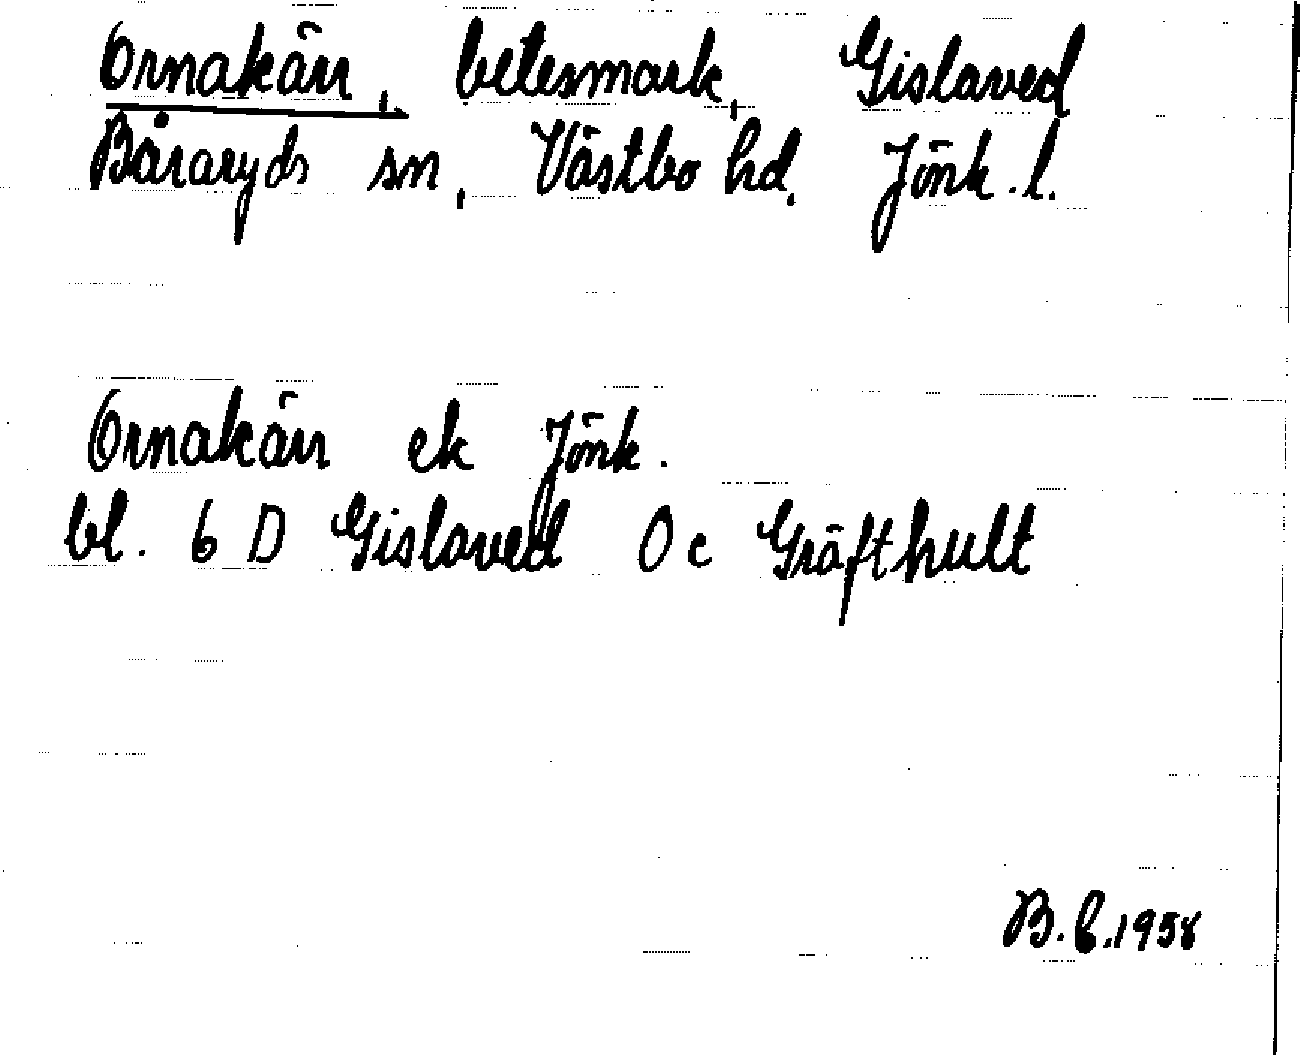 Ornakärr, betesmark, Gislaved
Båraryds sn, Västbo hd. Jönk.l.
Ornakärr ek Jönk.
bl. 6 D Gislaved 0 c Gräfthult
B.L.1958